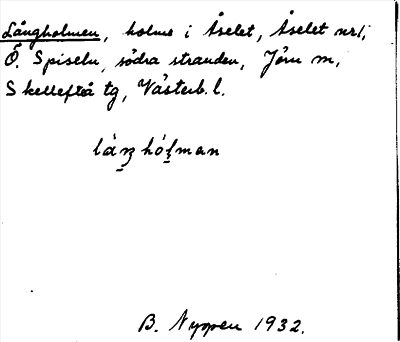 Långholmen, holme i Åselet, Åselet nr 1,
Ö. Spiseln, södra stranden, Jörn sn,
Skellefteå tg, Västerb. l.
làŋhólman
B. Nyppen 1932.